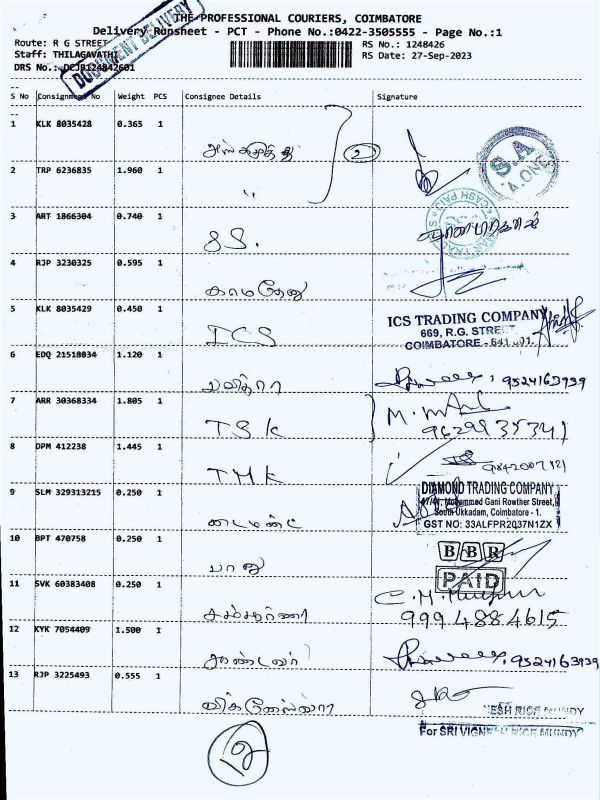 THE PROFESSIONAL COURIERS, COIMBATORE
Delivery Runsheet - PCT - Phone No.:0422-3505555 - Page No.:1
Route: R G STREET
RS No.: 1248426
Staff: THILAGAVATHI
RS Date: 27-Sep-2023
DRS No.: DCJB124842601
DOCUMENT DELIVERY
S No Consignment No Weight PCS Consignee Details Signature
1 KLK 8035428 0.365 1
2
S.A
2 TRP 6236835 1.960 1 "
CASH PAID
3 ART 1866304 0.740 1 SS.
4 RJP 3230325 0.595 1 காமதேனு
5 KLK 8035429 0.450 1 ICS
ICS TRADING COMPANY
669, R.G. STREET
COIMBATORE - 641 001.
6 EDQ 21518834 1.120 1 பவித்ரா 9524163939
7 ARR 30368334 1.805 1 TSK
8 DPM 412238 1.445 1 TMK
9 SLM 329313215 0.250 1 டைமண்ட்
DIAMOND TRADING COMPANY
Mohammed Gani Rowther Street,
South Ukkadam, Coimbatore - 1.
GST NO: 33ALFPR2037N1ZX
10 BPT 470758 0.250 1 பானு
BBR
PAID
11 SVK 60383408 0.250 1
9994884615
12 KYK 7054409 1.500 1 9524163939
13 RJP 3225493 0.555 1
ESH RICE MUNDY
For SRI VIGNESH RICE MUNDY